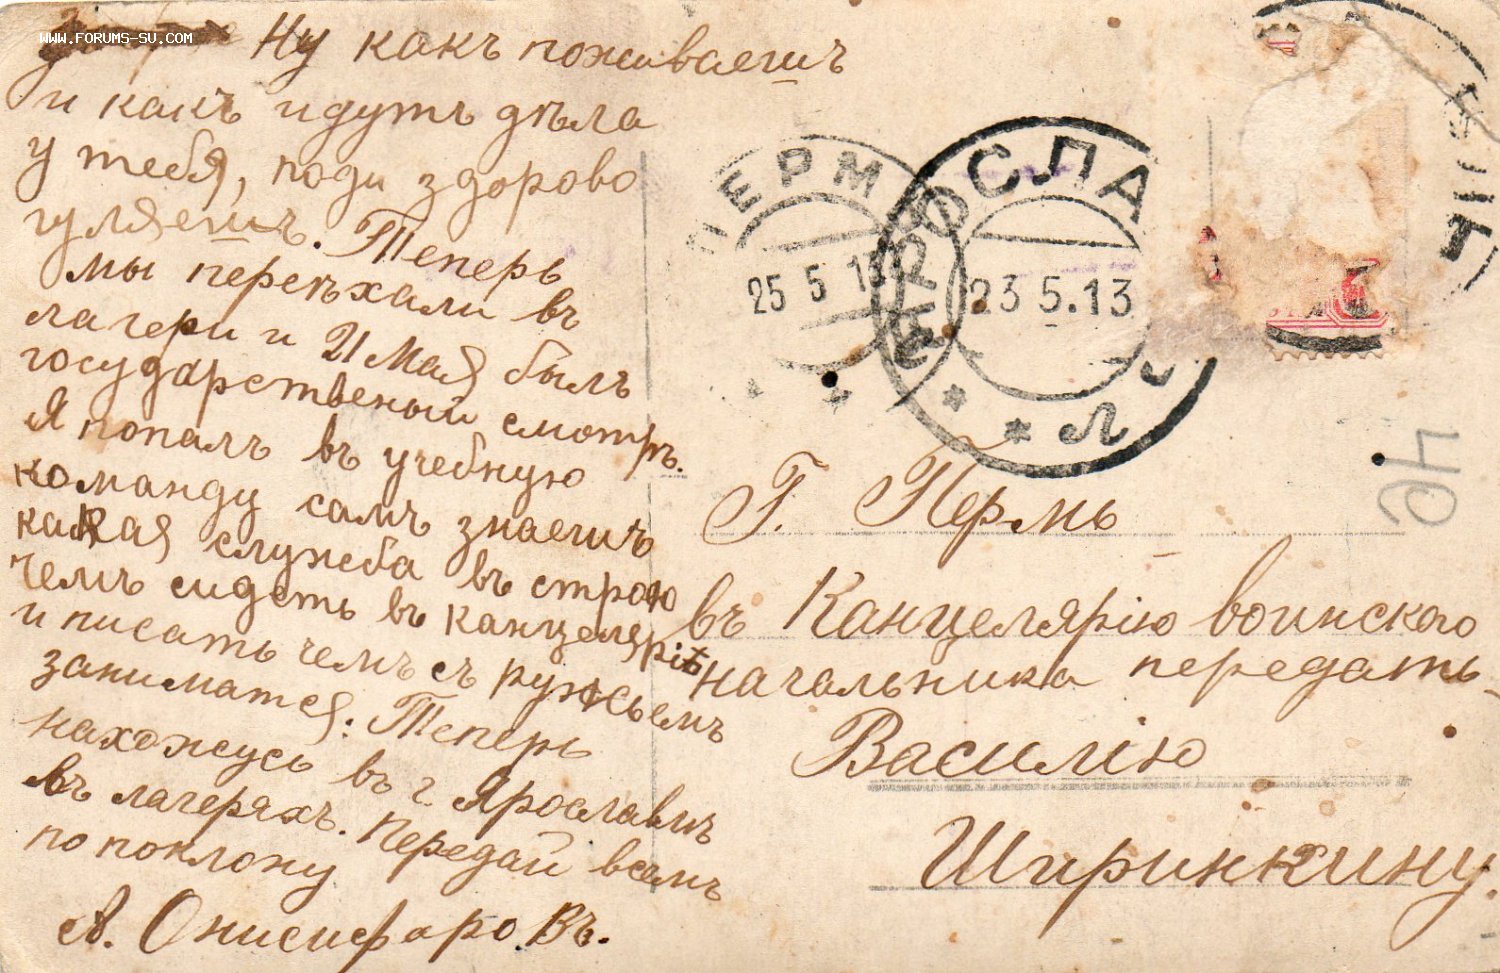 www.forums-su.com
Ну какъ поживаешъ
и какъ идутъ дѣла
у тебя, поди здорово
гуляешъ. Теперь
мы переѣхали въ
лагери и 21 Мая былъ
государственый смотръ.
Я попалъ въ учебную
команду самъ знаешъ
какая служба въ строю
чемъ сидеть въ канцелярiѣ
и писать чемъ съ ружьемъ
заниматся: Теперь
нахожусь въ г. Ярославлѣ
въ лагеряхъ. Передай всемъ
по поклону
А. Онисифоровъ.
ПЕРМЬ
25 5 13
ЯРОСЛАВЛЬ
23 5.13
Г. Пермь
въ Канцелярiю воинского
начальника передать
Василiю
Ширинкину.
40